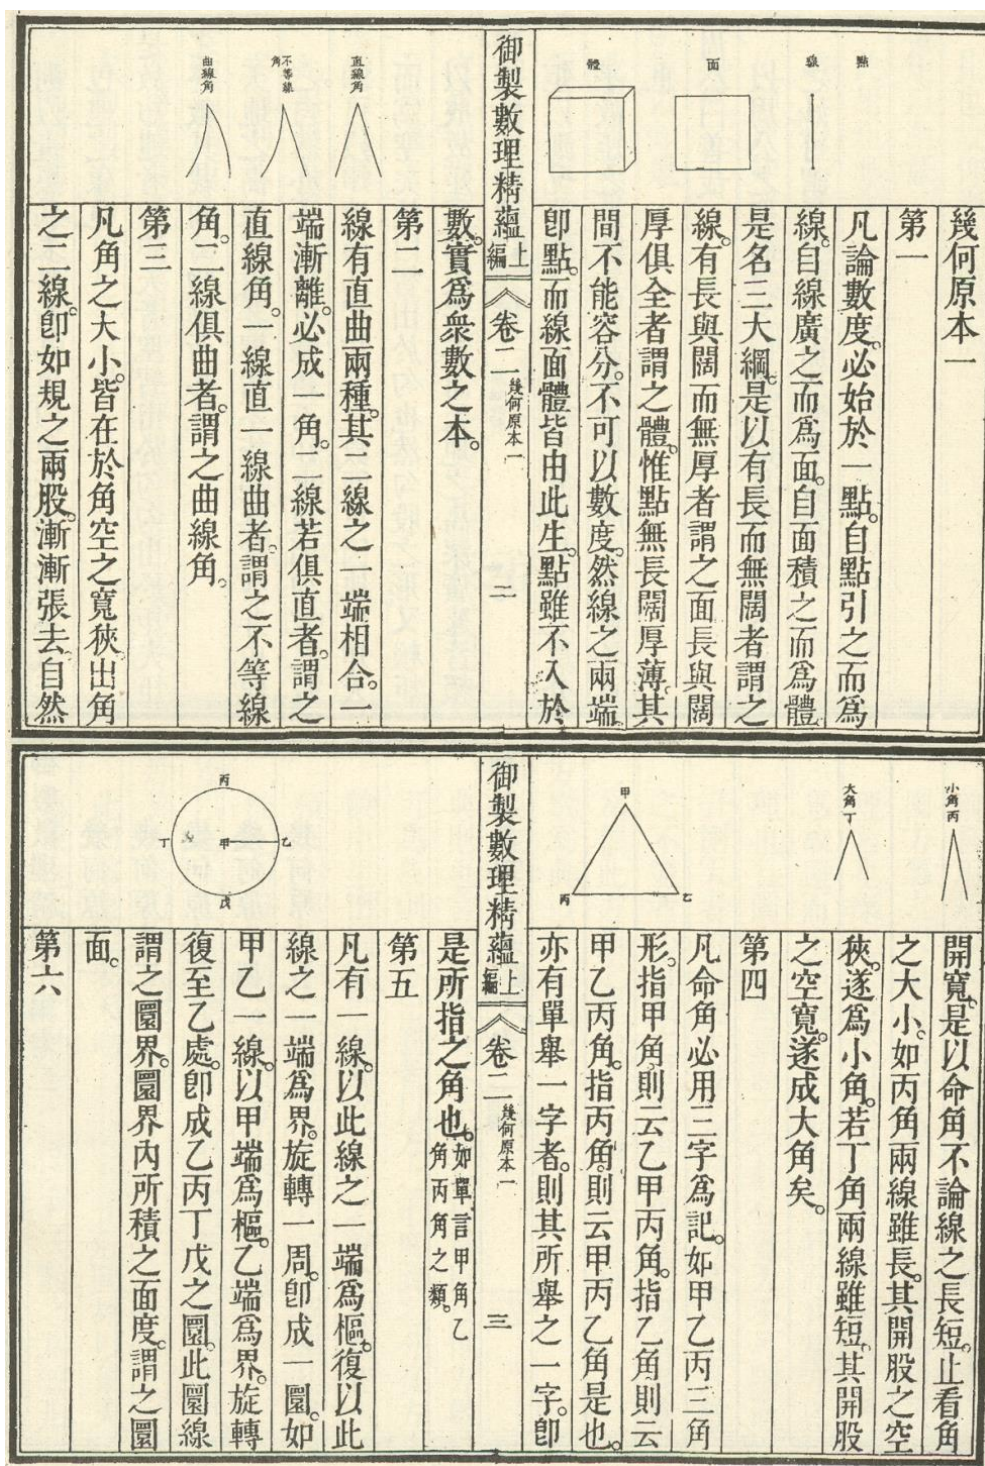 點
線
面
體
幾何原本一
第一
凡論數度。必始於一點。自點引之而爲
線。自線廣之而爲面。自面積之而爲體。
是名三大綱。是以有長而無闊者謂之
線。有長與闊而無厚者謂之面。長與闊
厚俱全者謂之體。惟點無長闊厚薄。其
間不能容分。不可以數度。然線之兩端
卽點。而線面體皆由此生。點雖不入於
御製數理精蘊上編
卷二
幾何原本一
二
直線角
不等線角
曲線角
數。實爲衆數之本。
第二
線有直曲兩種。其二線之一端相合。一
端漸離。必成一角。二線若俱直者。謂之
直線角。一線直一線曲者。謂之不等線
角。二線俱曲者。謂之曲線角。
第三
凡角之大小。皆在於角空之寬狹。出角
之二線。卽如規之兩股。漸漸張去。自然
小角丙
大角丁
甲
丙
乙
開寬。是以命角不論線之長短。止看角
之大小。如丙角兩線雖長。其開股之空
狹。遂爲小角。若丁角兩線雖短。其開股
之空寬。遂成大角矣。
第四
凡命角必用三字爲記。如甲乙丙三角
形。指甲角則云乙甲丙角。指乙角則云
甲乙丙角。指丙角。則云甲丙乙角是也。
亦有單舉一字者。則其所舉之一字。卽
御製數理精蘊上編
卷二
幾何原本一
三
丙
丁
甲
乙
戊
是所指之角也。如單言甲角乙
角丙角之類。
第五
凡有一線。以此線之一端爲樞。復以此
線之一端爲界。旋轉一周。卽成一圜。如
甲乙一線。以甲端爲樞。乙端爲界。旋轉
復至乙處。卽成乙丙丁戊之圜。此圜線
謂之圜界。圜界內所積之面度。謂之圜
面。
第六